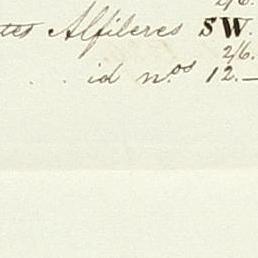 Alfileres SW.
2/6.
. . id n.os 12.—